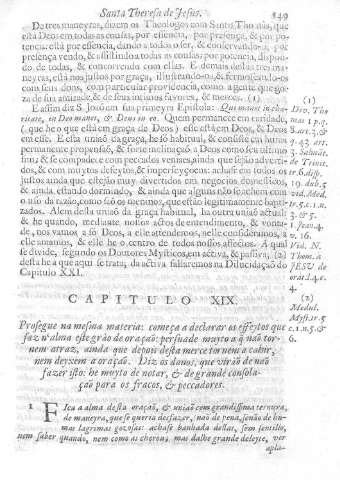 Santa Theresa de Jesus. 149
De tres maneyras, dizem os Theologos com Santo Thomás, que
está Deos em todas as cousas, por essencia, por presença, & por po-
tencia: está por essencia, dando a todos o ser, & conservando-o, por
presença vendo, & assistindo a todas as cousas: por potencia, dispon-
do, de todas, & concorrendo com ellas. E demais destas tres ma-
neyras, está nos justos por graça, illustrando-os, & fermoseando-os
com seus dons, com particular providencia, como a gente que go-
za de sua amizade, & de seus intimos favores, & merces. (1)
E assim diz S. João em sua primeyra Epistola: Qui manet in cha-
ritate, in Deo manet, & Deus in eo. Quem permanece em caridade,
(que he o que está em graça de Deos) esse está em Deos, & Deos
em esse. E esta união da graça, he só habitual, & consiste em huma
permanente propensão, & firme inclinação a Deos como seu ultimo
fim; & se compadece com peccados veniaes, ainda que sejão adverti-
dos, & com muytos defeytos, & imperfeyçoens: acha-se em todos os
justos ainda que estejão muy divertidos em negocios domesticos,
& ainda estando dormindo, & ainda que alguns não estejão com
o uso da razão, como são os meninos, que estão legitimamente bapti-
zados. Alem desta união da graça habitual, ha outra união actual
& he quando, mediante nossos actos de entendimento, & vonta-
de, nos vamos a só Deos, a elle attendemos, nelle consideramos, a
elle amamos, & elle he o centro de todos nossos affectos. A qual
se divide, segundo os Doutores Mysticos, em activa, & passiva, (2)
desta he a que aqui se trata, da activa fallaremos na Dilucidação do
Capitulo XXI.
(1)
Div. Tho
mas 1. p. q.
8. art. 3. &
q. 43. art.
3.
de Trinit.
19. dub. 5
3. & 5.
1. Joan. 4.
v. 16.
Vid. N.
Thom. a
JESU de
orat. l. 4. c.
4.
(2)
Medul.
Myst. tr. 5
c. 1. n. 5. &
6.
CAPITULO XIX.
Prosegue na mesma materia: começa a declarar os effeytos que
faz n'alma este grão de oração: persuade muyto a que não tor-
nem atraz, ainda que depois desta merce tornem a cahir,
nem deyxem a oração. Diz os danos, que virão de não
fazer isto: he muyto de notar, & de grande consola-
ção para os fracos, & peccadores.
1 FIca a alma desta oração, & união com grandissima ternura,
de maneyra, que se querria desfazer, não de pena, senão de hu-
mas lagrimas gozosas: acha-se banhada dellas, sem sentillo,
nem saber quando, nem como as chorou, mas dalhe grande deleyte, ver
apla-